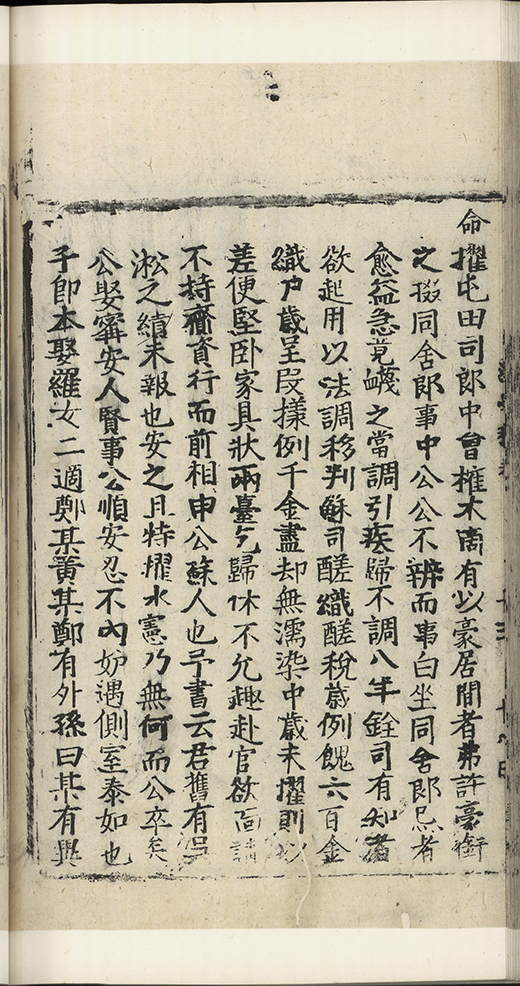 命擢屯田司郎中會榷木商有以豪居間者弗許豪銜
之掇同舍郎事中公公不辨而事白坐同舍郎忌者
愈益急竟衊之當調引疾歸不調八年銓司有知者
欲起用以法調移判蘇司醝織醝稅歲例餽六百金
織戶歲呈段様例千金盡却無濡染中歲未擢則以
差便堅卧家具狀兩臺乞歸休不允趣赴官欲
不持齋資行而前相申公蘇人也予書云君舊有
淞之績未報也安之且特擢水憲乃無何而公卒矣
公娶寗安人賢事公順安忍不內妒遇側室泰如也
子卽本娶羅女二適鄭某黃某鄭有外孫曰某有異